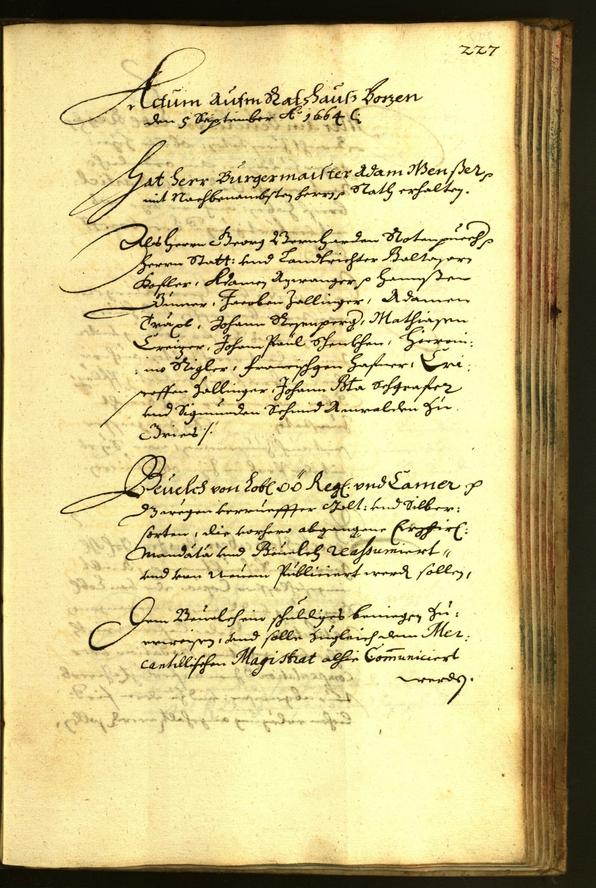 227
Actum Aufm Rathauß Bozen
den 5 September Aº 1664
Hat Herr Burgermaister Adam Wenßer
mit Nachbenambsten Herrn Rath erhalten.
Als Herrn Georg Bernharden Rotenpuech
Herrn Statt: und Landtrichter Balthasarn
Kofler, Adamen Hannßen
Zinner, Jacoben Zallinger, Adamen
Träxl, Johann Rosenperg, Mathiasen
Creizer, Johann Paul Hieroni:
mo Rigler, Francischgen Hafner, Cri:
stoffen Zallinger, Johann Bta Schgraffer
und Sigmunden Schmid Anwalden zu
Gries /.
Beuelch von Lobl: OÖ Reg: vnd Camer
daß wegen verrueffter Golt: und Silber:
sorten, die vorhero abgangene
Mandata und Beuelch reassumiert
und von Neuem Publiciert werden sollen,
Dem Beuelch ein schuldiges beniegen zu:
erweisen, und solle zugleich dem Mer:
cantillischen Magistrat alhie Com̄uniciert
werden.